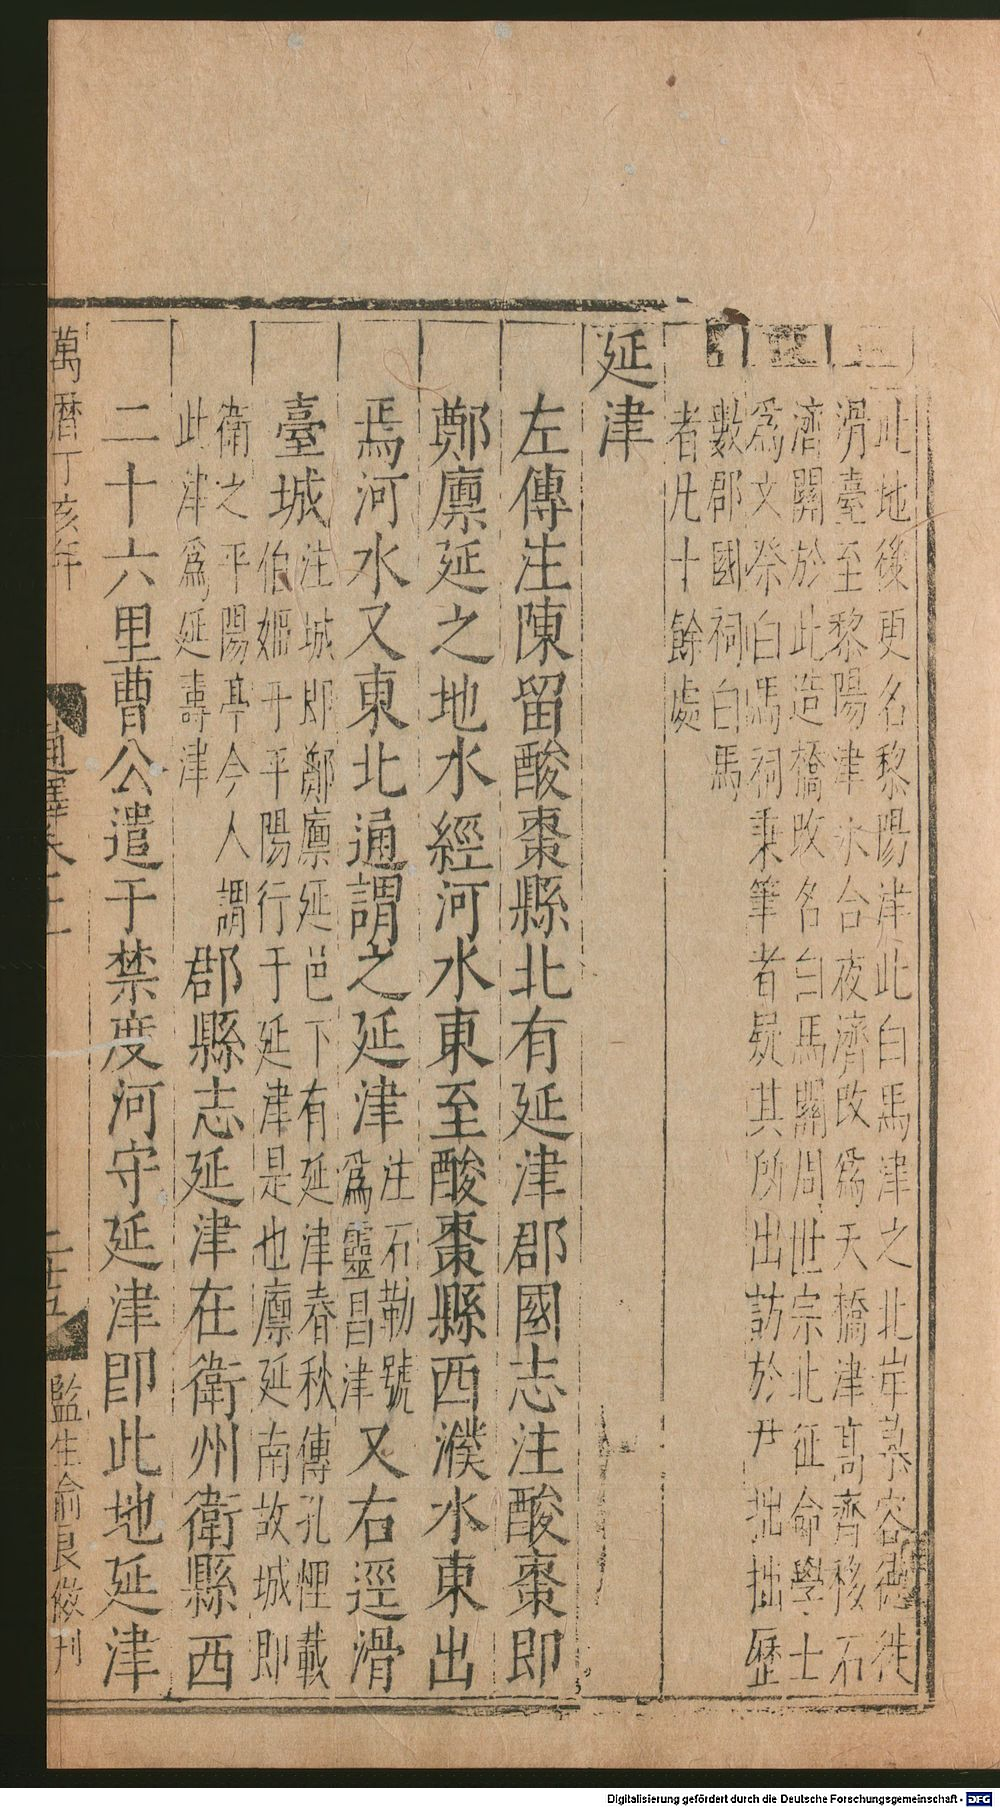 此地後更名黎陽津此白馬津之北岸慕容德徙
滑臺至黎陽津氷合夜濟改爲天橋津高齊移石
濟關於此造橋改名白馬關周世宗北征命學士
爲文祭白馬祠秉筆者疑其所出訪於尹拙拙歷
數郡國祠白馬
者凡十餘處
延津
左傳注陳留酸棗縣北有延津郡國志注酸棗即
鄭廩延之地水經河水東至酸棗縣西濮水東出
焉河水又東北通謂之延津
注石勒號
爲靈昌津
又右逕滑
臺城
注城即鄭廪延邑下有延津春秋傳孔悝載
伯姬于平陽行于延津是也廪延南故城即
衛之平陽亭今人謂
此津爲延壽津
郡縣志延津在衛州衛縣西
二十六里曹公遣于禁度河守延津即此地延津
萬曆丁亥年
通釋卷十一
二十五
監生俞良
刊
Digitalisierung gefördert durch die Deutsche Forschungsgemeinschaft - DFG